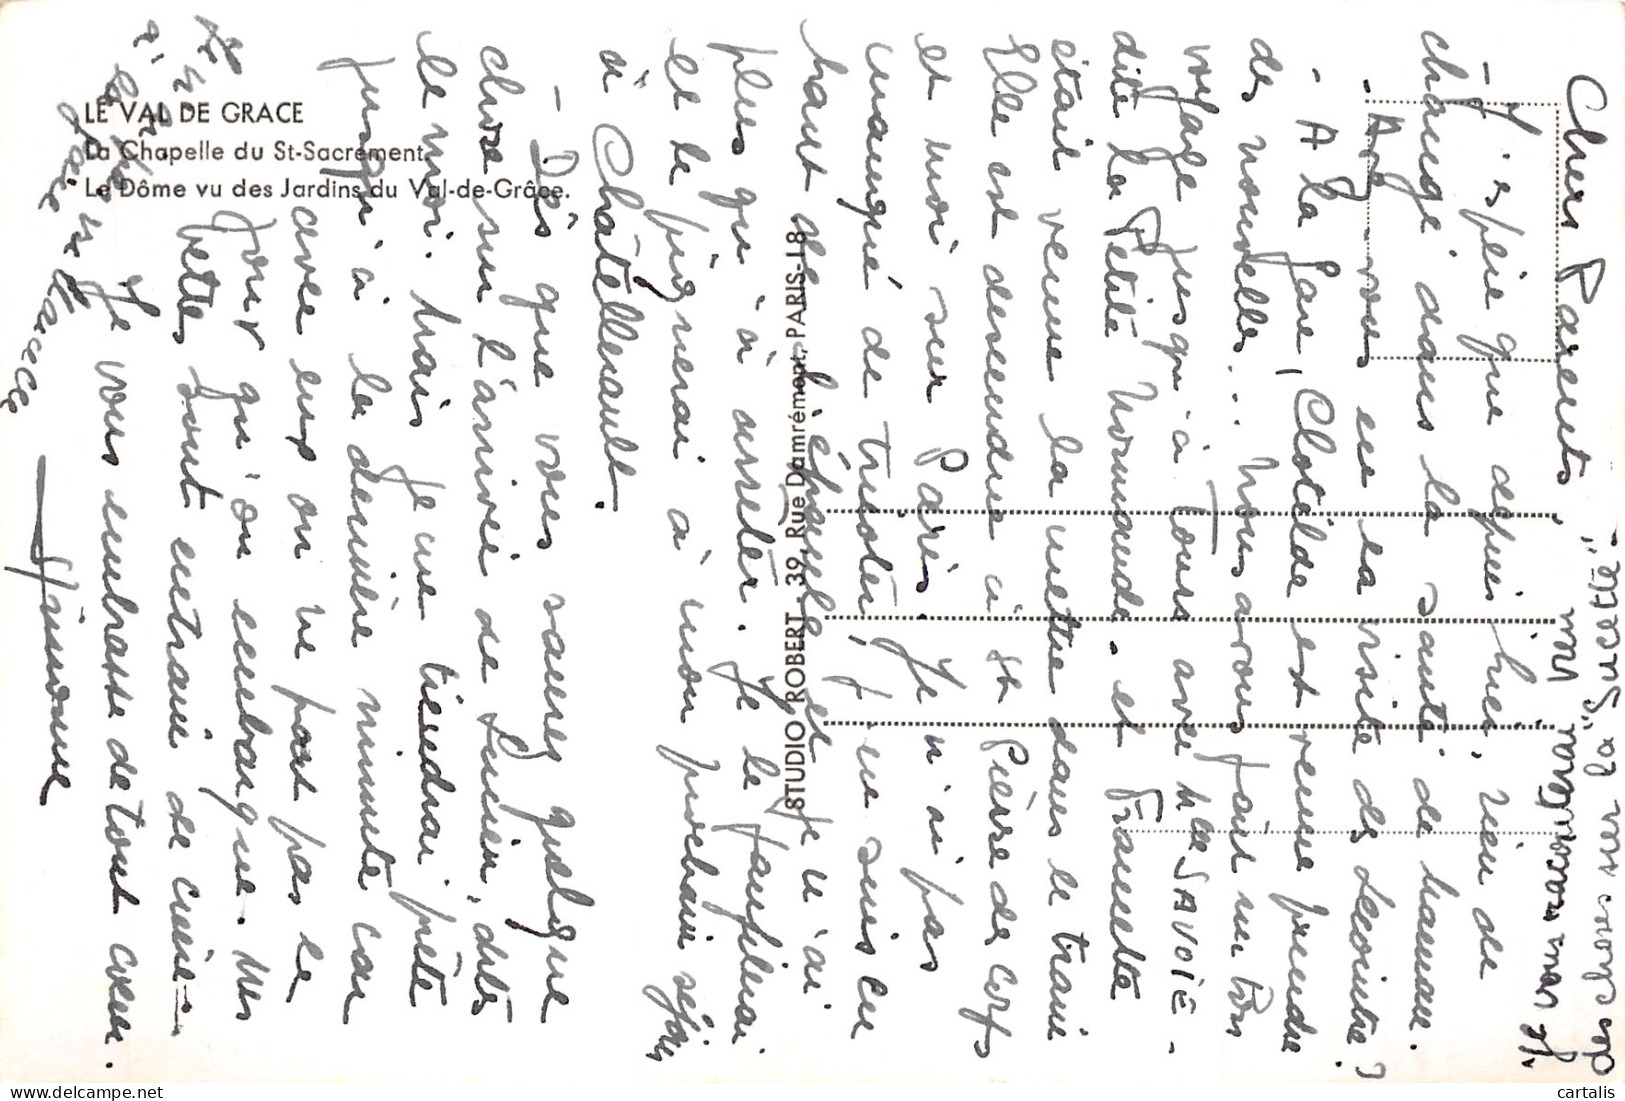 LE VAL DE GRACE
La Chapelle du St-Sacrement.
Le Dôme vu des Jardins du Val-de-Grâce.
STUDIO ROBERT, 39, Rue Damrémont, PARIS-18
Chers Parents,
- J'espère que depuis hier, rien de
changé dans la santé de maman.
- Avez-vous eu la visite des Lecointre ?
- A la gare, Clotilde est venue prendre
des nouvelles... Nous avons fait un bon
voyage jusqu'à Tours avec Mlle SAVOIE -
dite La Petite Normande. et Francette
était venue la mettre dans le train
Elle est descendue à St Pierre des Corps
et moi sur Paris. Je n'ai pas
manqué de tricoter, je me suis en
haut de l'épaule et je n'ai
plus qu'à arrêter. Je le faufilerai
et le piquerai à mon prochain séjour
à Châtellerault.
- Dès que vous saurez quelque
chose sur l'arrivée de Lucien, dites
le moi. Mais je me tiendrai prête
jusqu'à la dernière minute car
avec eux on ne part pas le
jour qu'on embarque. Mes
bettes sont entrain de cuire -
Je vous embrasse de tout coeur.
Simone
des choses sur la "Sucette".
cartalis